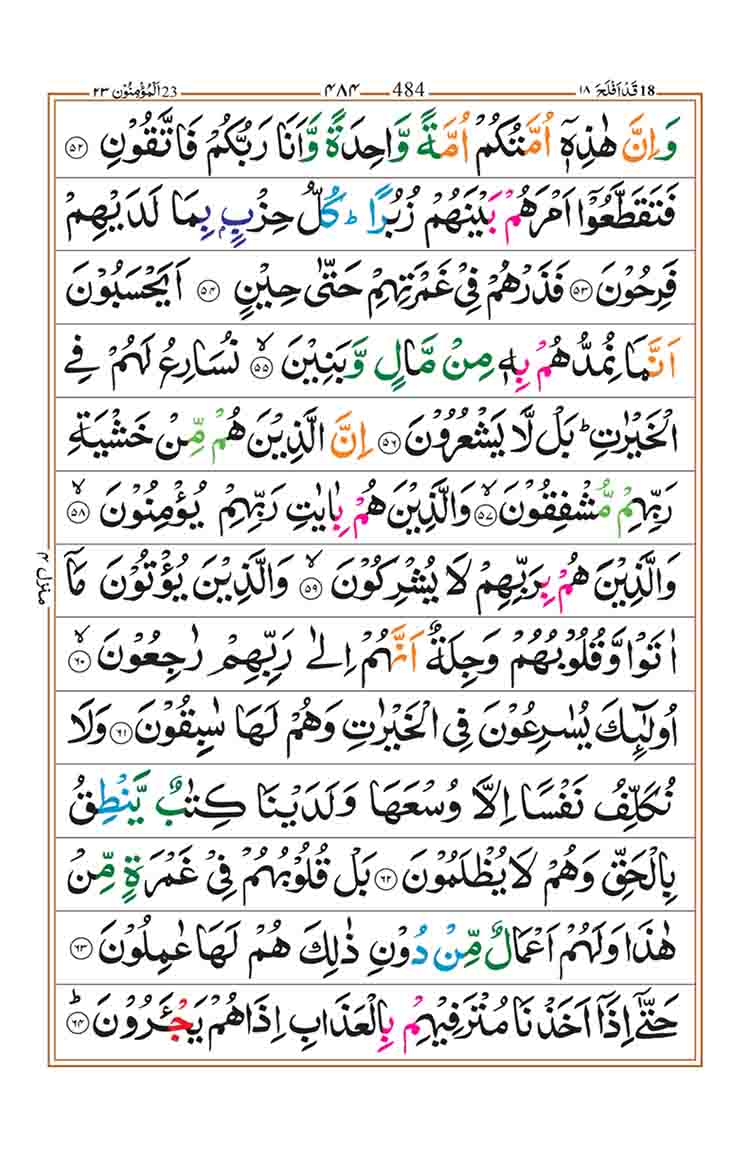 18 قَدْ اَفْلَحَ ١٨ 484 ٤٨٤ 23 اَلْمُؤْمِنُوْن ٢٣
وَاِنَّ هٰذِهٖٓ اُمَّتُكُمْ اُمَّةً وَّاحِدَةً وَّاَنَا رَبُّكُمْ فَاتَّقُوْنِ ۝٥٢
فَتَقَطَّعُوْٓا اَمْرَهُمْ بَيْنَهُمْ زُبُرًا ؕ كُلُّ حِزْبٍۭ بِمَا لَدَيْهِمْ
فَرِحُوْنَ ۝٥٣ فَذَرْهُمْ فِيْ غَمْرَتِهِمْ حَتّٰى حِيْنٍ ۝٥٤ اَيَحْسَبُوْنَ
اَنَّمَا نُمِدُّهُمْ بِهٖ مِنْ مَّالٍ وَّبَنِيْنَ ۝٥٥ۙ نُسَارِعُ لَهُمْ فِي
الْخَيْرٰتِ ؕ بَلْ لَّا يَشْعُرُوْنَ ۝٥٦ اِنَّ الَّذِيْنَ هُمْ مِّنْ خَشْيَةِ
رَبِّهِمْ مُّشْفِقُوْنَ ۝٥٧ۙ وَالَّذِيْنَ هُمْ بِاٰيٰتِ رَبِّهِمْ يُؤْمِنُوْنَ ۝٥٨ۙ
وَالَّذِيْنَ هُمْ بِرَبِّهِمْ لَا يُشْرِكُوْنَ ۝٥٩ۙ وَالَّذِيْنَ يُؤْتُوْنَ مَآ
اٰتَوْا وَّقُلُوْبُهُمْ وَجِلَةٌ اَنَّهُمْ اِلٰى رَبِّهِمْ رٰجِعُوْنَ ۝٦٠ۙ
اُولٰٓئِكَ يُسٰرِعُوْنَ فِي الْخَيْرٰتِ وَهُمْ لَهَا سٰبِقُوْنَ ۝٦١ وَلَا
نُكَلِّفُ نَفْسًا اِلَّا وُسْعَهَا وَلَدَيْنَا كِتٰبٌ يَّنْطِقُ
بِالْحَقِّ وَهُمْ لَا يُظْلَمُوْنَ ۝٦٢ بَلْ قُلُوْبُهُمْ فِيْ غَمْرَةٍ مِّنْ
هٰذَا وَلَهُمْ اَعْمَالٌ مِّنْ دُوْنِ ذٰلِكَ هُمْ لَهَا عٰمِلُوْنَ ۝٦٣
حَتّٰىٓ اِذَآ اَخَذْنَا مُتْرَفِيْهِمْ بِالْعَذَابِ اِذَا هُمْ يَجْـَٔرُوْنَ ۝٦٤ؕ
منزل ٤